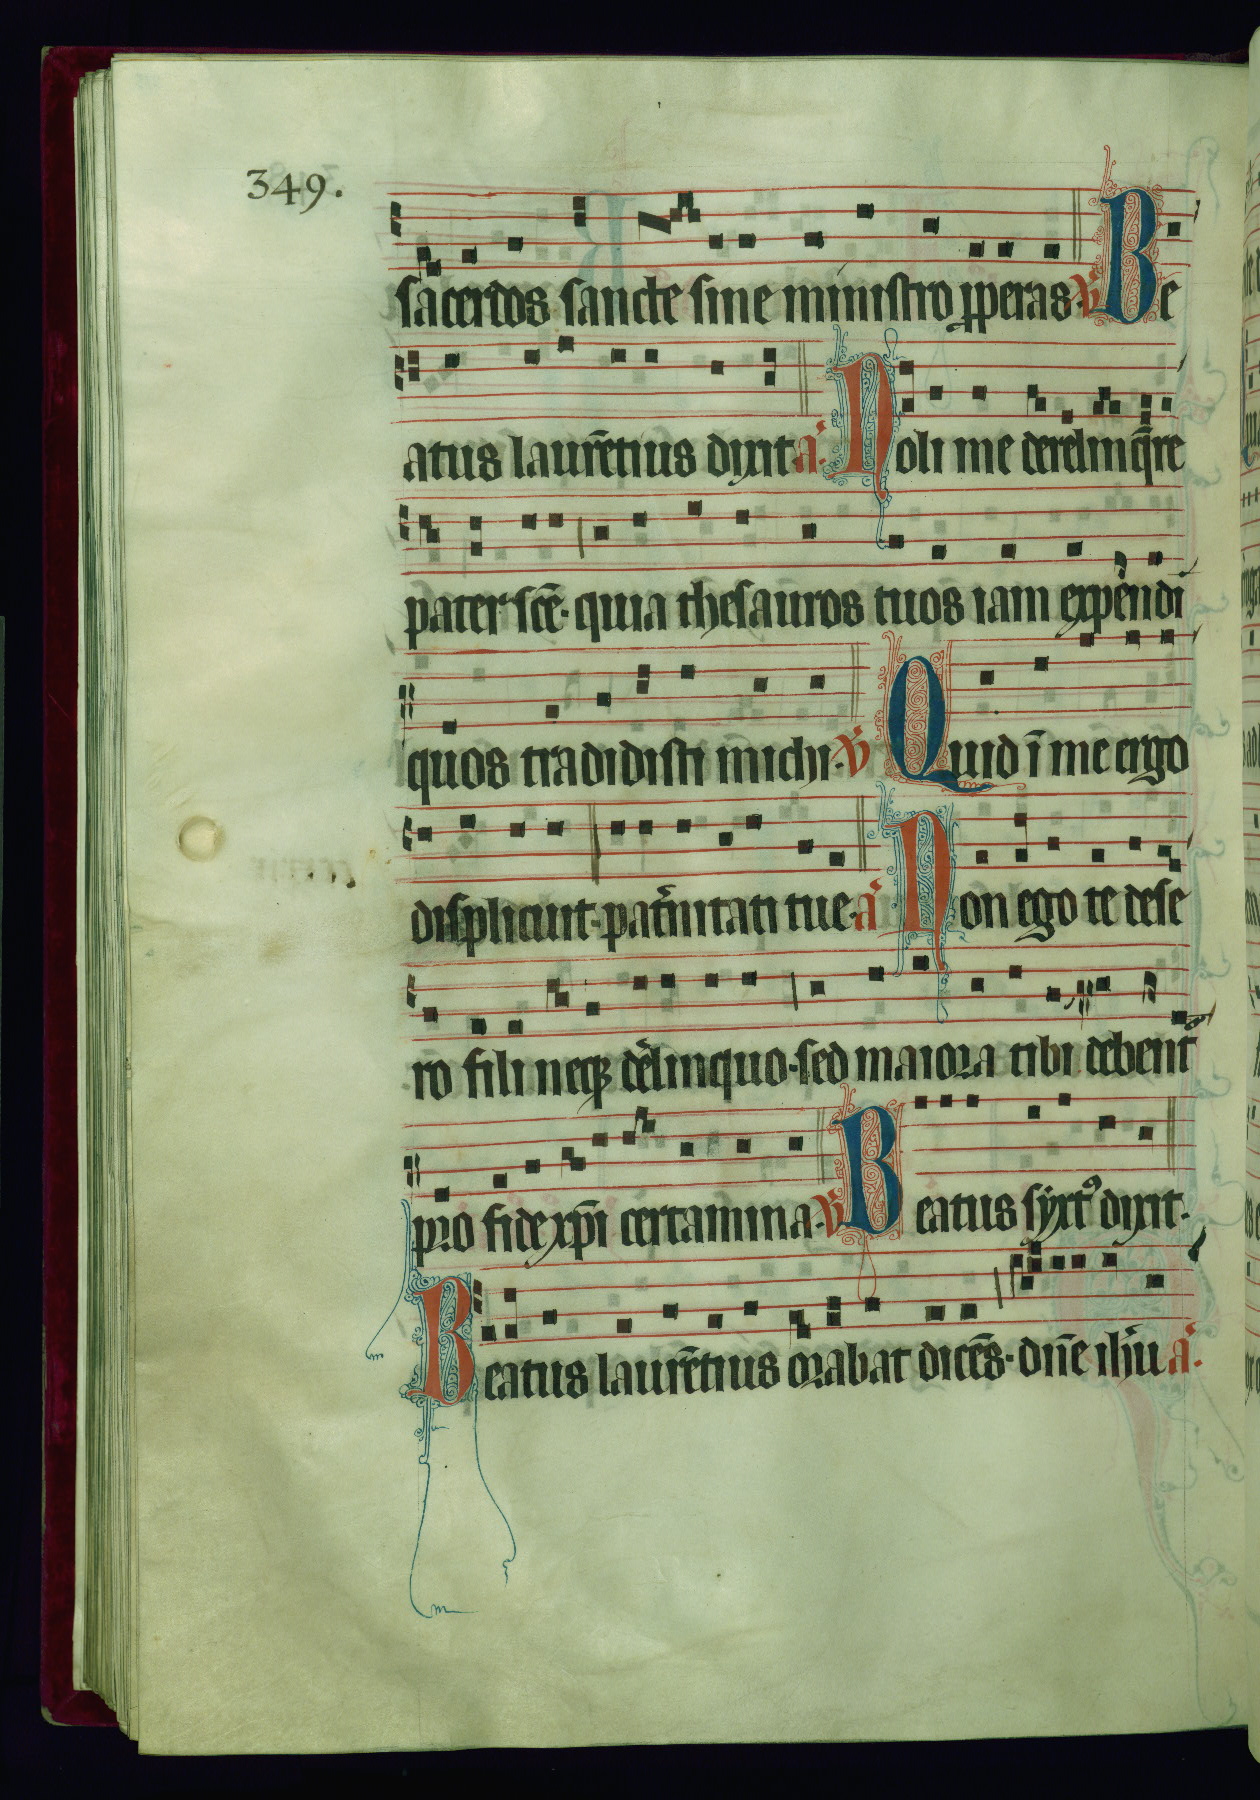 349.
sacerdos sancte sine ministro pꝑeras. ℣ Be
atus laurẽtius dixit a᷑. Noli me derelinq̃re
pater scẽ. quia thesauros tuos iam expendi
quos tradidisti michi. ℣ Quid ĩ me ergo
displicuit. pat̃nitati tue. a᷑ Non ego te dese
ro fili neqꝫ derelinquo. sed maiora tibi debent᷑
pro fide xp̃i certamina. ℣ Beatus syxtꝰ dixit.
Beatus laurẽtius orabat dicẽs. dñe ih̃u a᷑.